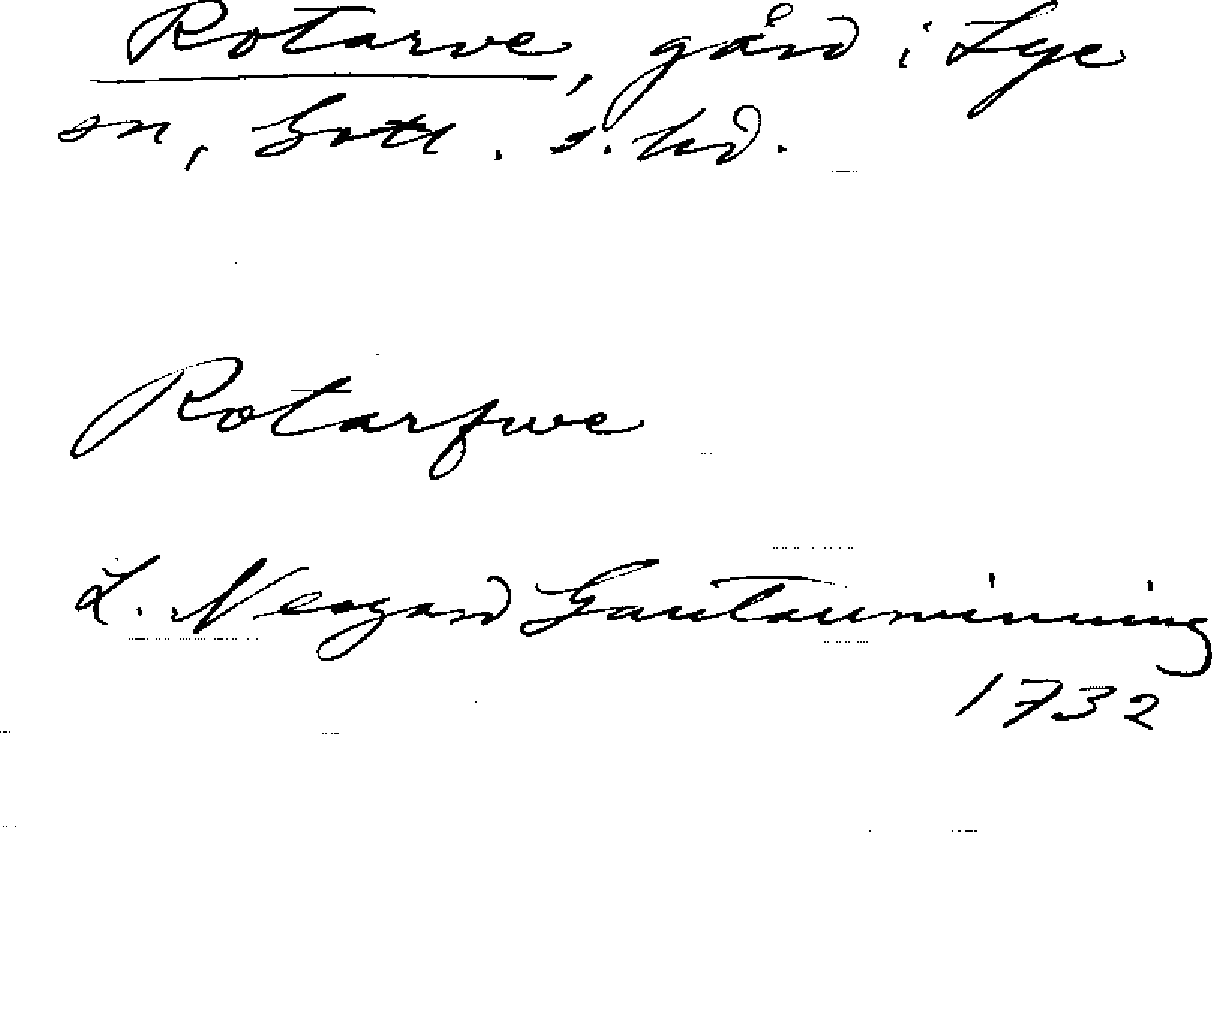 Rotarve, gård i Lye
sn, Gotl. s. hd.
Rotarfwe
L. Neogard Gautauminning
1732